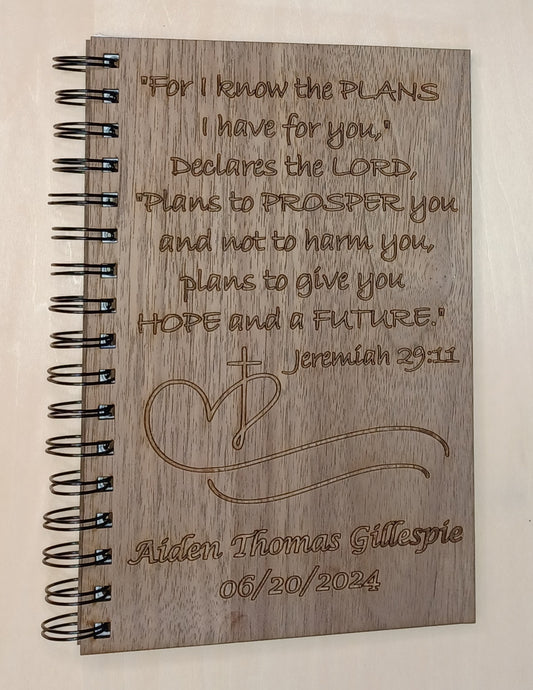 "For I know the PLANS
I have for you,"
Declares the LORD,
"Plans to PROSPER you
and not to harm you,
plans to give you
HOPE and a FUTURE."
Jeremiah 29:11
Aiden Thomas Gillespie
06/20/2024